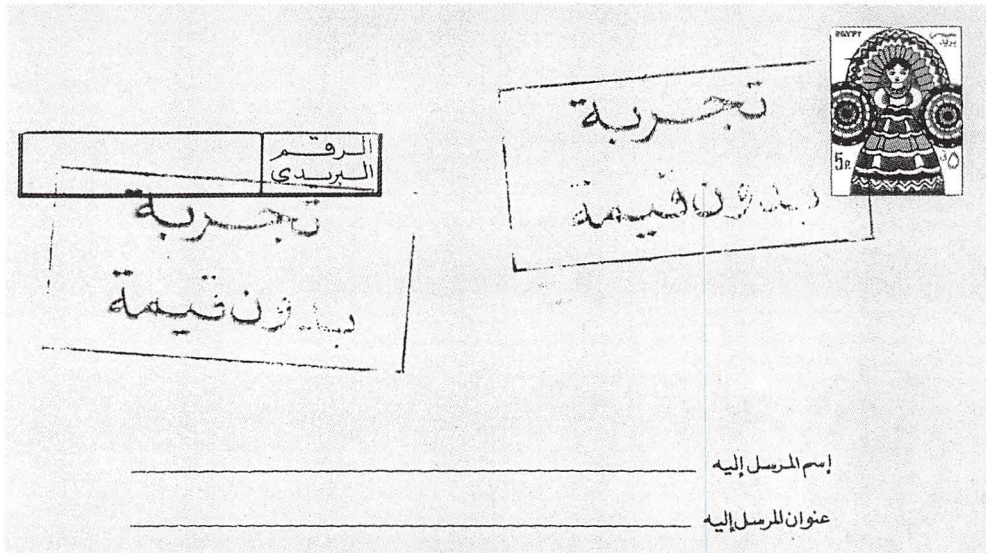 EGYPT مصر
بريد
5P. ٥ق
تجربة
بدون قيمة
الرقم
البريدى
تجربة
بدون قيمة
إسم المرسل إليه
عنوان المرسل إليه